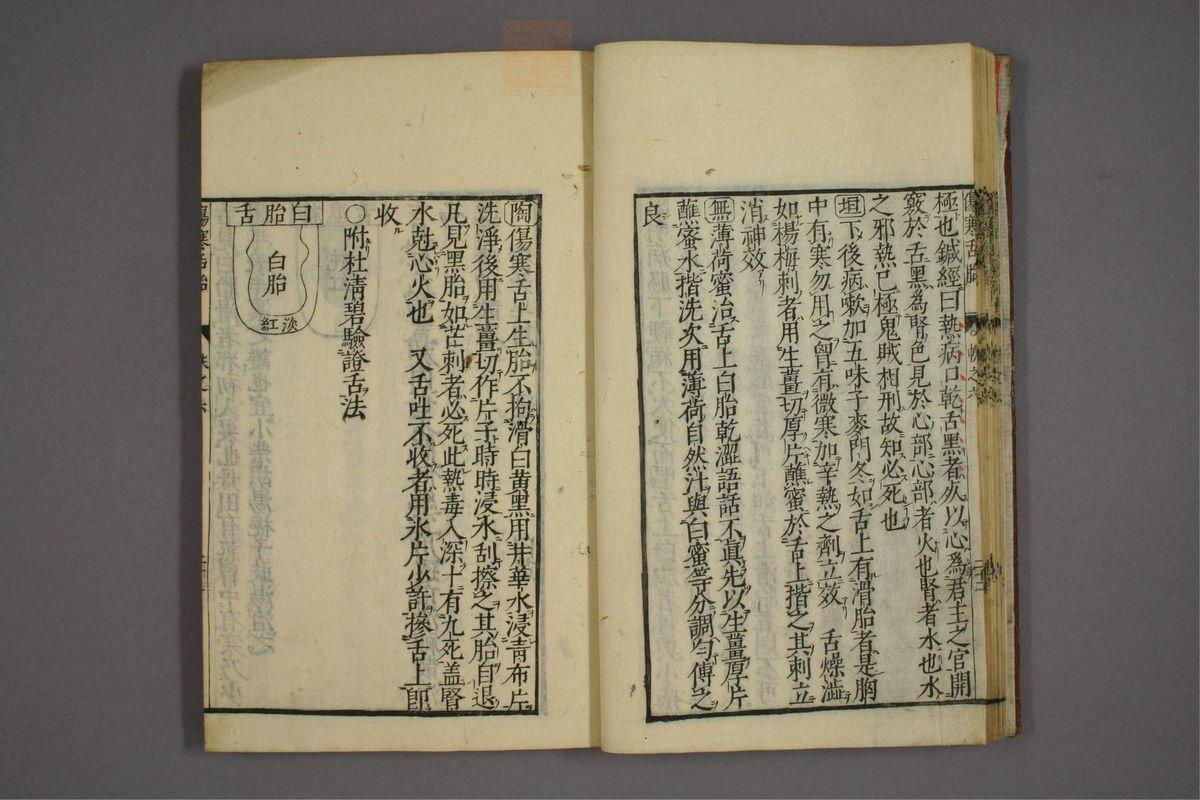 傷寒舌胎
卷之六
極也鍼經曰熱病口乾舌黑者死以心爲君主之官開
竅於舌黑爲腎色見於心部心部者火也腎者水也水
之邪熱已極鬼賊相刑故知必死也
垣下後病嗽加五味子麥門冬如舌上有滑胎者是胸
中有寒勿用之曾有微寒加辛熱之劑立效 舌燥澁
如楊梅刺者用生薑切厚片蘸蜜於舌上揩之其刺立
消神效
無薄荷蜜治舌上白胎乾澀語話不眞先以生薑厚片
蘸蜜水揩洗次用薄荷自然汁與白蜜等分調勻傅之
良
陶傷寒舌上生胎不拘滑白黃黑用井華水浸青布片
洗淨後用生薑切作片子時時浸水刮擦之其胎自退
凡見黑胎如芒刺者必死此熱毒入深十有九死盖腎
水尅心火也 又舌吐不收者用氷片少許摻舌上卽
收
○附杜清碧驗證舌法
白胎舌
白胎
淡紅
傷寒舌胎